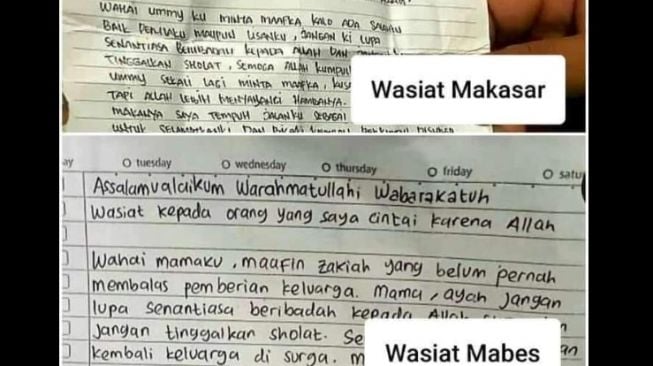 WAHAI UMMY KU MINTA MAAFKA KALO ADA SALAHKU
BAIK PERILAKU MAUPUN LISANKU, JANGAN KI LUPA
SENANTIASA BERIBADAH KEPADA ALLAH DAN
TINGGALKAN SHOLAT, SEMOGA ALLAH KUMPUL
UMMY SEKALI LAGI MINTA MAAFKA,
TAPI ALLAH LEBIH MENYAYANGI HAMBANYA.
MAKANYA SAYA TEMPUH JALANKU SEBAGAI
UNTUK
Wasiat Makasar
ay O tuesday O wednesday O thursday O friday O satu
Assalamualaikum Warahmatullahi Wabarakatuh
Wasiat kepada orang yang saya cintai karena Allah
Wahai mamaku, maafin zakiah yang belum pernah
membalas pemberian keluarga. Mama, ayah jangan
lupa senantiasa beribadah kepada
Jangan tinggalkan sholat. Se
kembali keluarga di surga. M
Wasiat Mabes